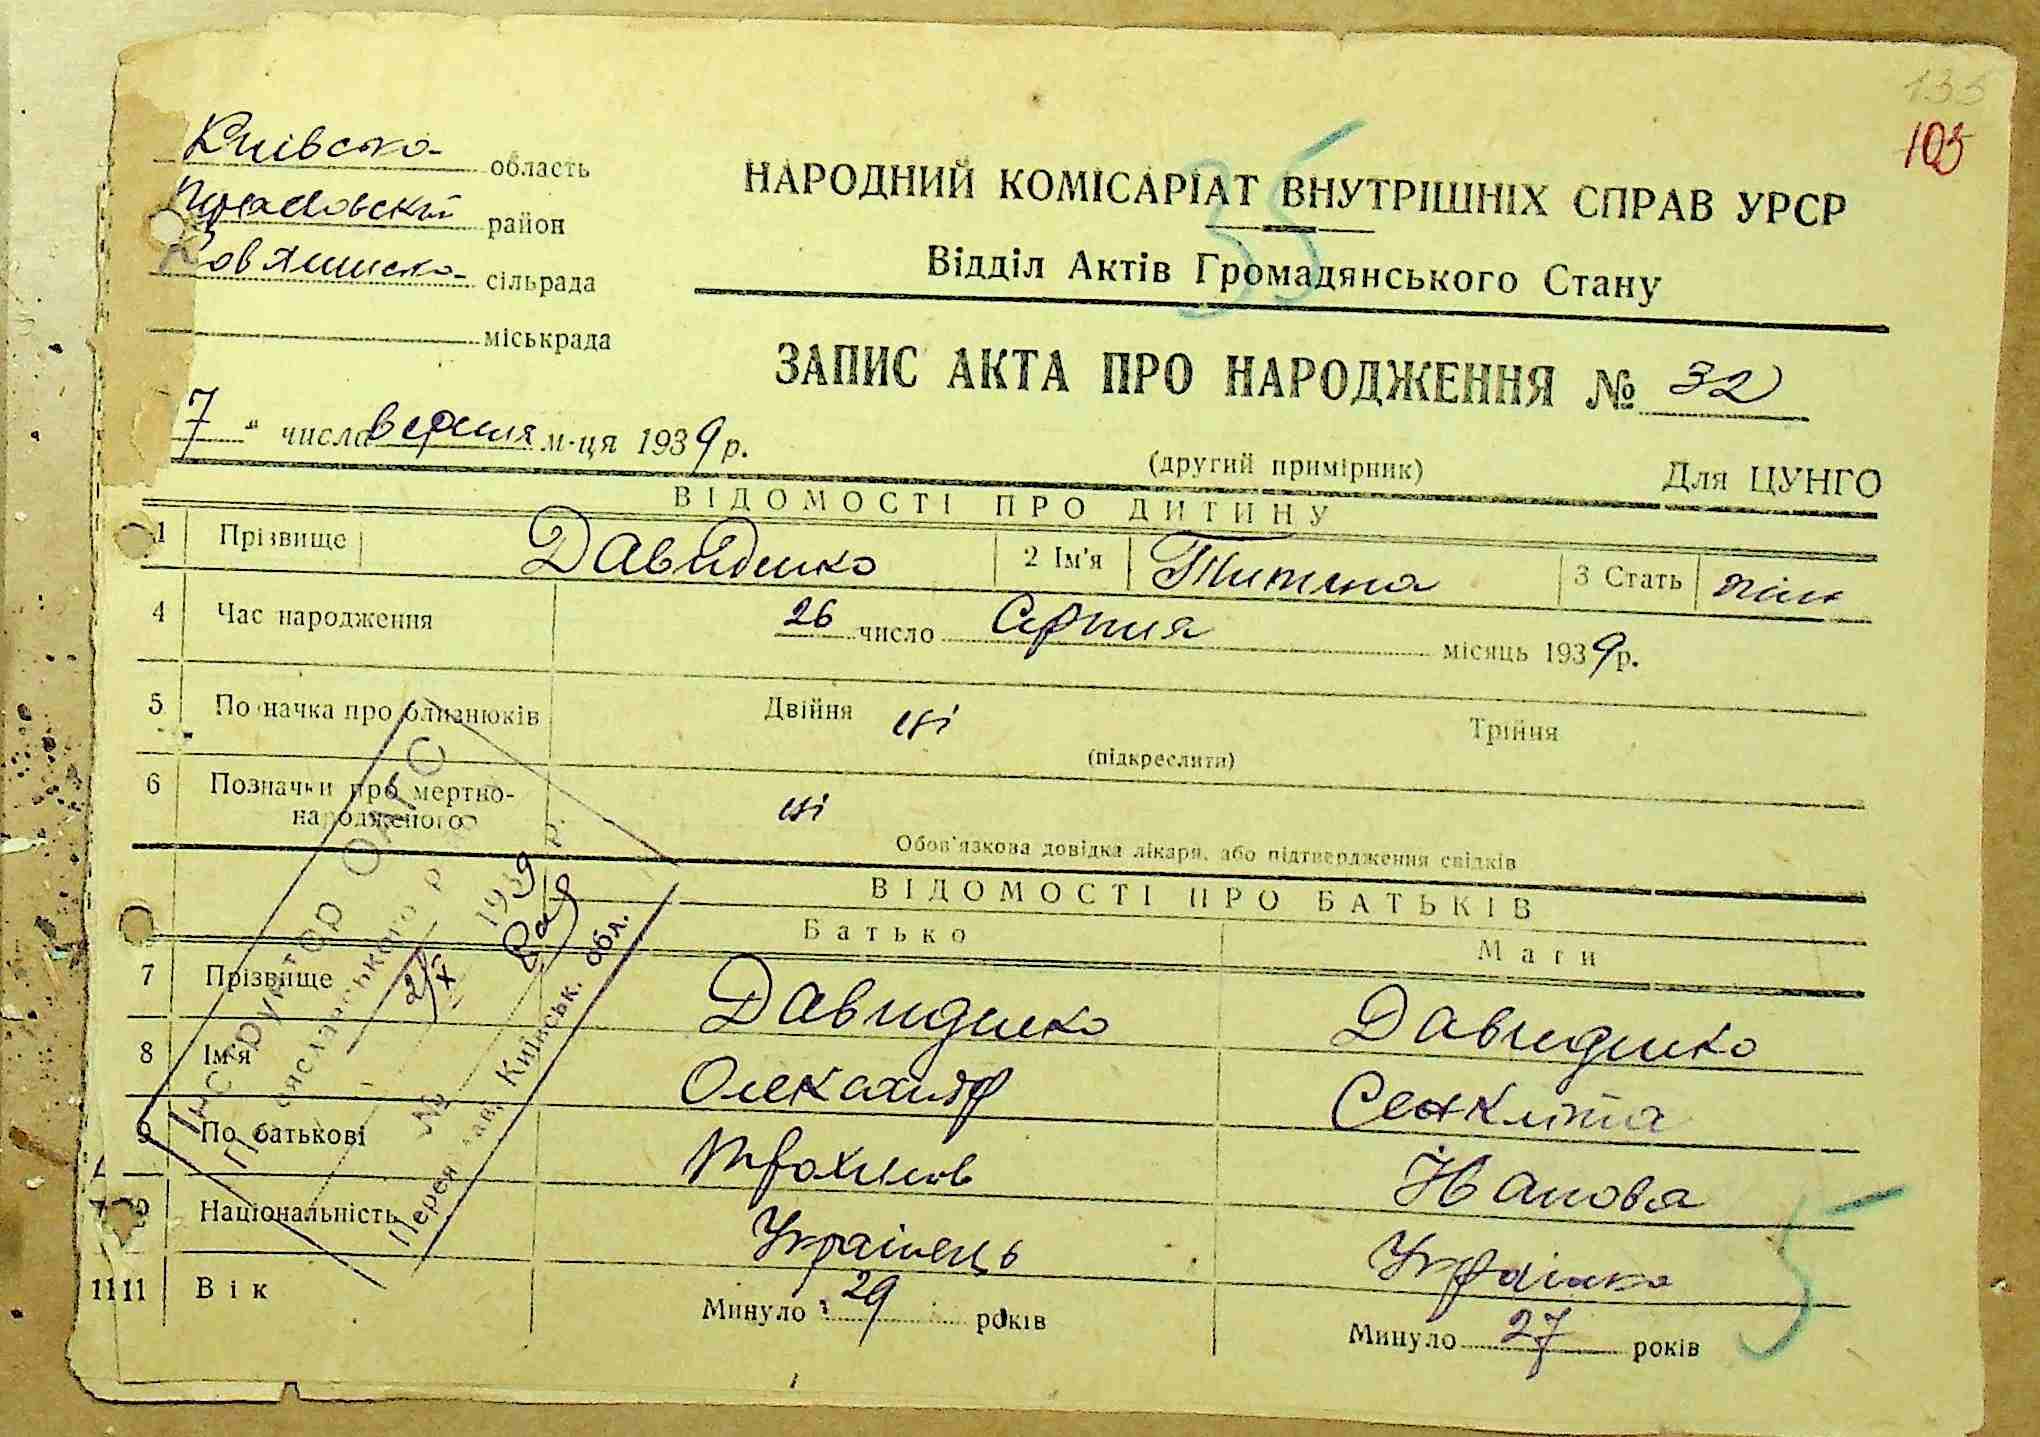 135
103
Київська область
район
сільрада
міськрада
35
НАРОДНИЙ КОМІСАРІАТ ВНУТРІШНІХ СПРАВ УРСР
Відділ Актів Громадянського Стану
ЗАПИС АКТА ПРО НАРОДЖЕННЯ № 32
7 " числа вересня м-ця 1939 р.
(другий примірник) Для ЦУНГО
ВІДОМОСТІ ПРО ДИТИНУ
1 Прізвище Давиденко 2 Ім'я Титяна 3 Стать жін
4 Час народження 26 число Серпня місяць 1939 р.
5 Позначка про близнюків Двійня ні Трійня
(підкреслити)
6 Позначки про мертно-
народженого ні
Обов'язкова довідка лікаря, або підтвердження свідків
ВІДОМОСТІ ПРО БАТЬКІВ
Батько Мати
7 Прізвище Давиденко Давиденко
8 Ім'я Олександр
9 По батькові Трохимов Іванова
Національність Українець Українка
11 11 Вік Минуло 29 років Минуло 27 років
5
Інструктор ОАГС
2/X 1939 р.
№
Київськ. обл.